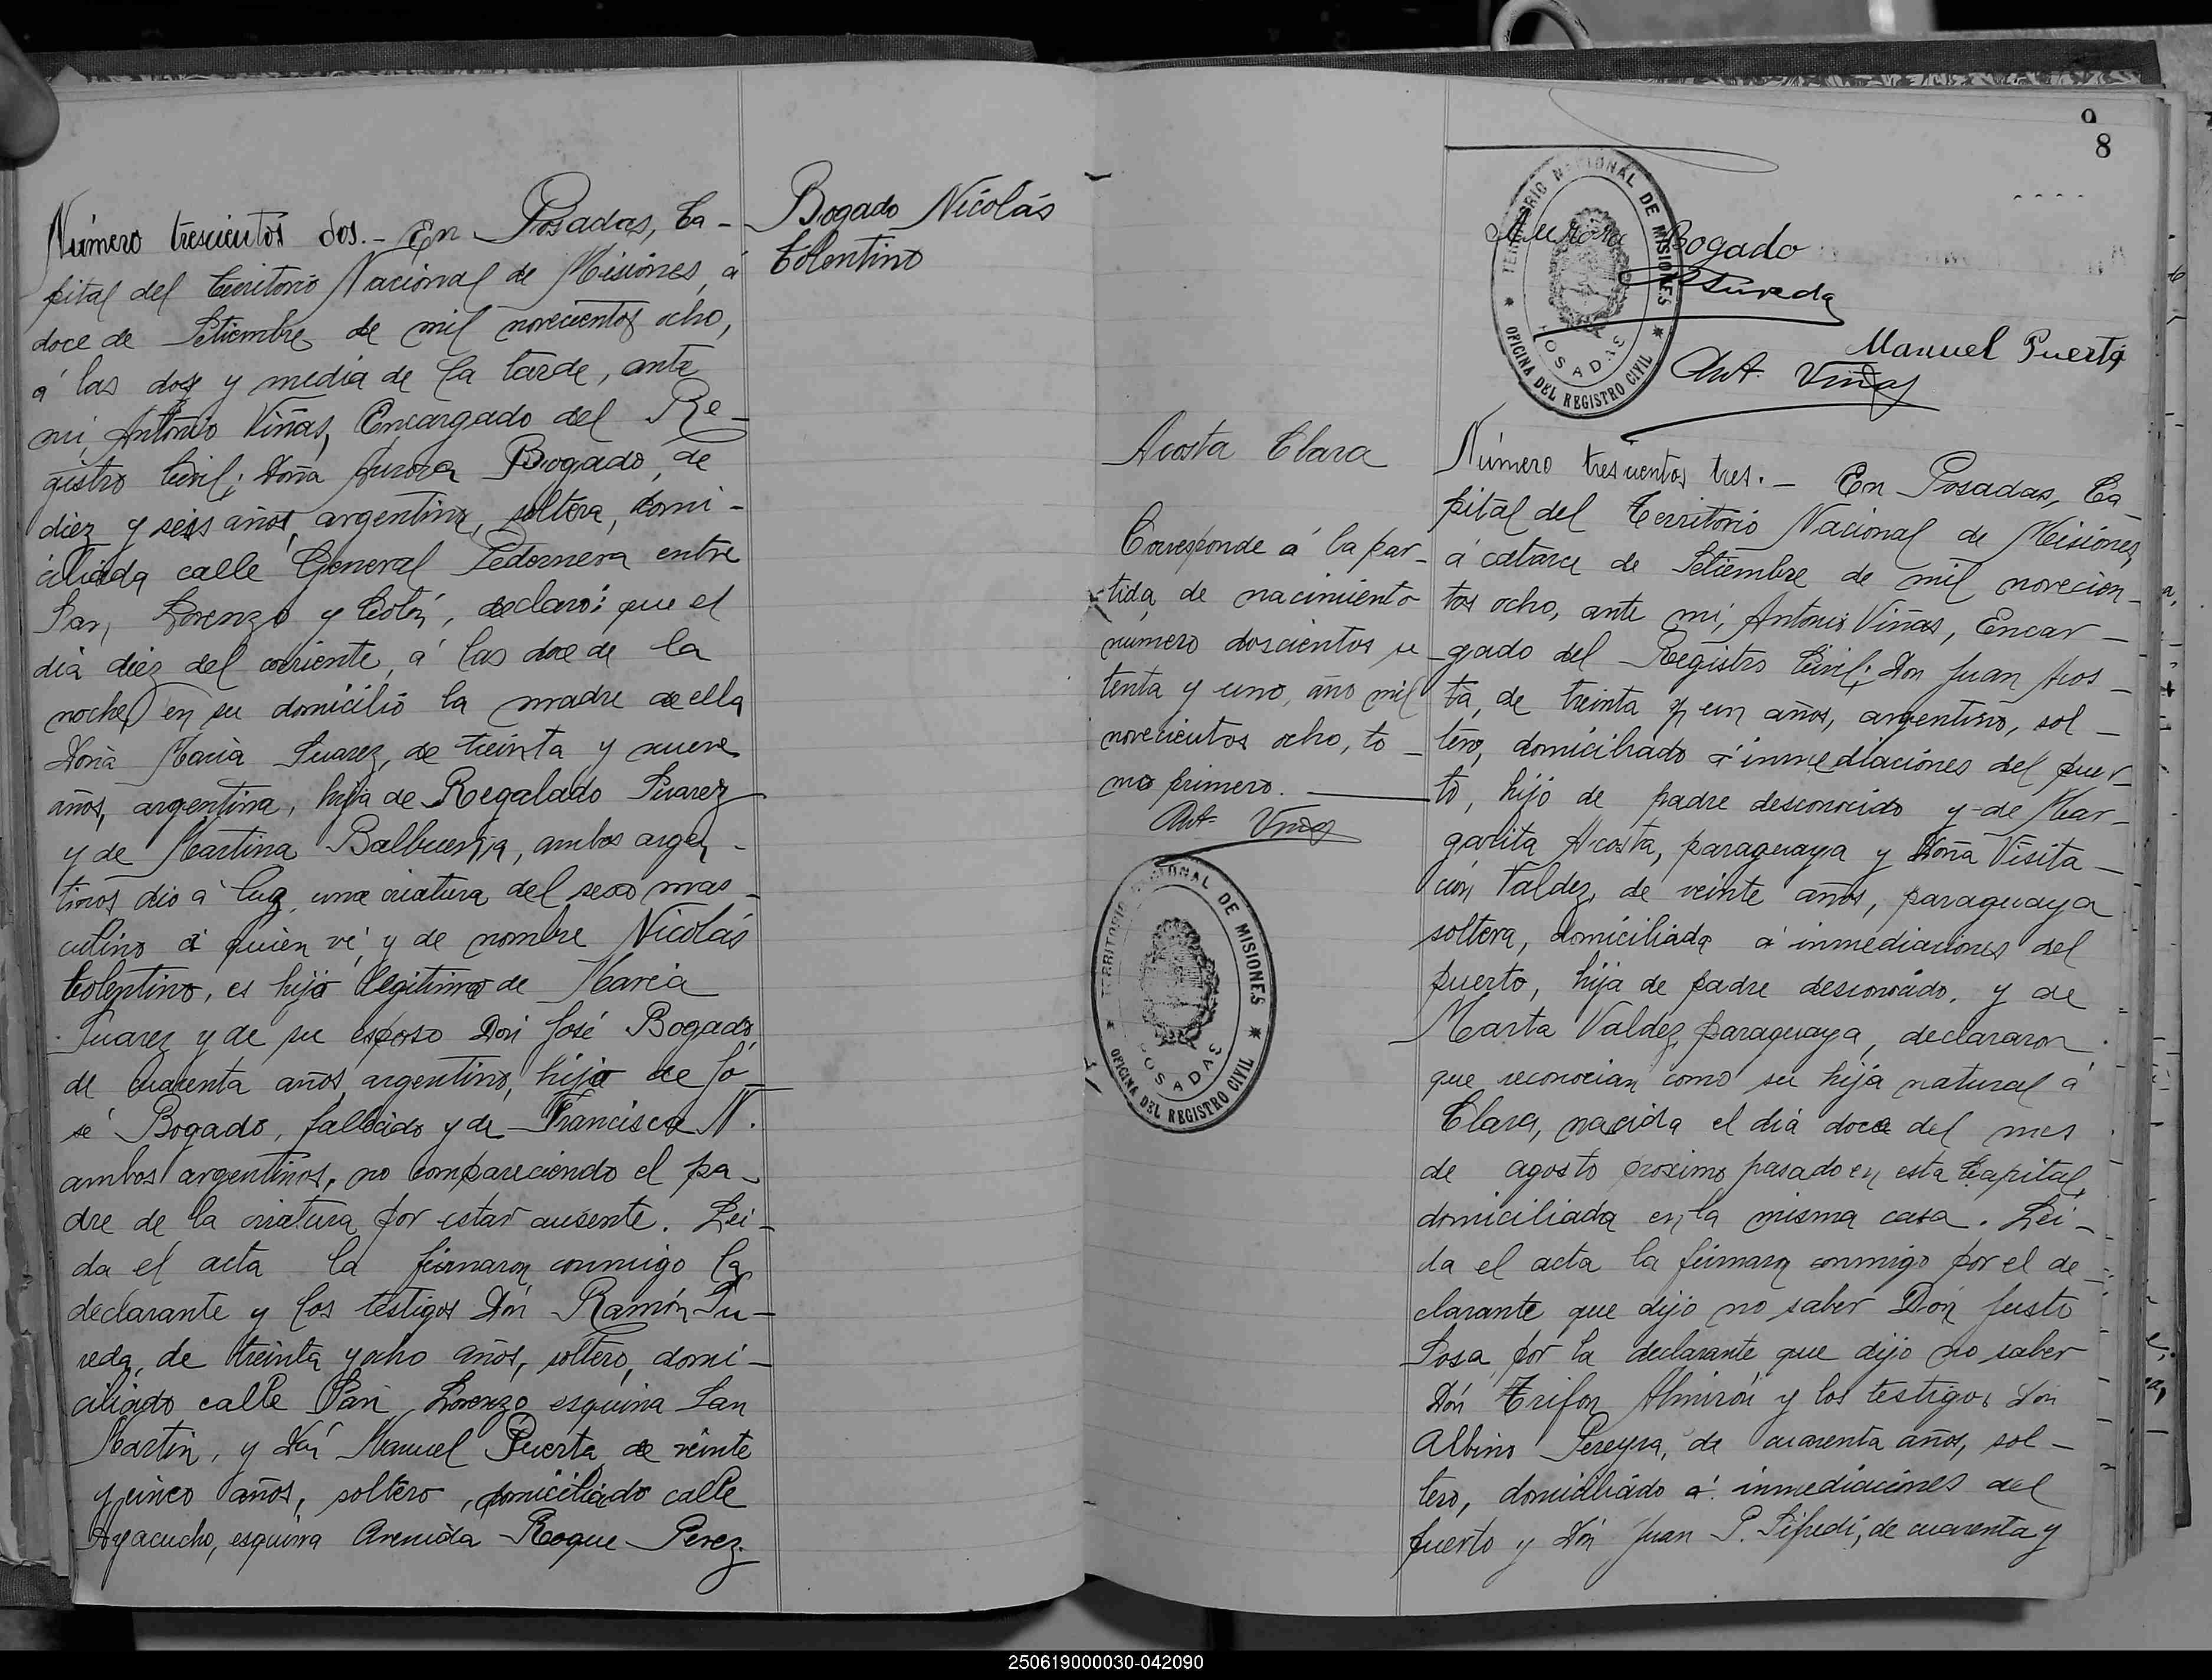 Número trescientos dos.- En Posadas, Ca-
pital del Territorio Nacional de Misiones, á
doce de Setiembre de mil novecientos ocho,
á las dos y media de la tarde, ante
mi, Antonio Viñas, Encargado del Re-
gistro Civil; Doña Aurora Bogado, de
diez y seis años, argentina, soltera, domi-
ciliada calle General Pedernera entre
San Lorenzo y Colón, declaró: que el
dia diez del corriente, á las doce de la
noche en su domicilio la madre de ella
Doña Maria Suarez, de treinta y nueve
años, argentina, hija de Regalado Suarez
y de Martina Balbuena, ambos argen-
tinos dio á luz una criatura del sexo mas-
culino á quien vé, y de nombre Nicolás
Tolentino, es hijo legitimo de Maria
Suarez y de su esposo Don José Bogado,
de cuarenta años, argentino, hijo de Jo-
sé Bogado, fallecido y de Francisca N.
ambos argentinos, no compareciendo el pa-
dre de la criatura por estar ausente. Lei-
da el acta la firmaron conmigo la
declarante y los testigos Dón Ramón Su-
reda, de treinta y ocho años, soltero, domi-
ciliado calle San Lorenzo esquina San
Martin, y Dón Manuel Puerta de veinte
y cinco años, soltero, domiciliado calle
Ayacucho, esquina Avenida Roque Perez.
Bogado Nicolás
Tolentino
8
Aurora Bogado
RSureda
Manuel Puerta
Ant. Viñas
TERRITORIO NACIONAL DE MISIONES
POSADAS
OFICINA DEL REGISTRO CIVIL
Acosta Clara
Corresponde á la par-
tida de nacimiento
número doscientos se-
tenta y uno, año mil
novecientos ocho, to-
mo primero.
Ant. Viñas
TERRITORIO NACIONAL DE MISIONES
POSADAS
OFICINA DEL REGISTRO CIVIL
Número trescientos tres.- En Posadas, Ca-
pital del Territorio Nacional de Misiones,
á catorce de Setiembre de mil novecien-
tos ocho, ante mi, Antonio Viñas, Encar-
gado del Registro Civil; Don Juan Acos-
ta, de treinta y un años, argentino, sol-
tero, domiciliado á inmediaciones del puer-
to, hijo de padre desconocido y de Mar-
garita Acosta, paraguaya y Doña Visita-
ción Valdez, de veinte años, paraguaya
soltera, domiciliada á inmediaciones del
puerto, hija de padre desconocido, y de
Marta Valdez, paraguaya, declararon
que reconocian como su hija natural á
Clara, nacida el dia doce del mes
de agosto proximo pasado en esta Capital,
domiciliada en la misma casa. Lei-
da el acta la firmaron conmigo por el de-
clarante que dijo no saber Dón Justo
Sosa, por la declarante que dijo no saber
Dón Trifon Almirón y los testigos Don
Albino Pereyra, de cuarenta años, sol-
tero, domiciliado á inmediaciones del
puerto y Dón Juan P. Sifredi, de cuarenta y
250619000030-042090